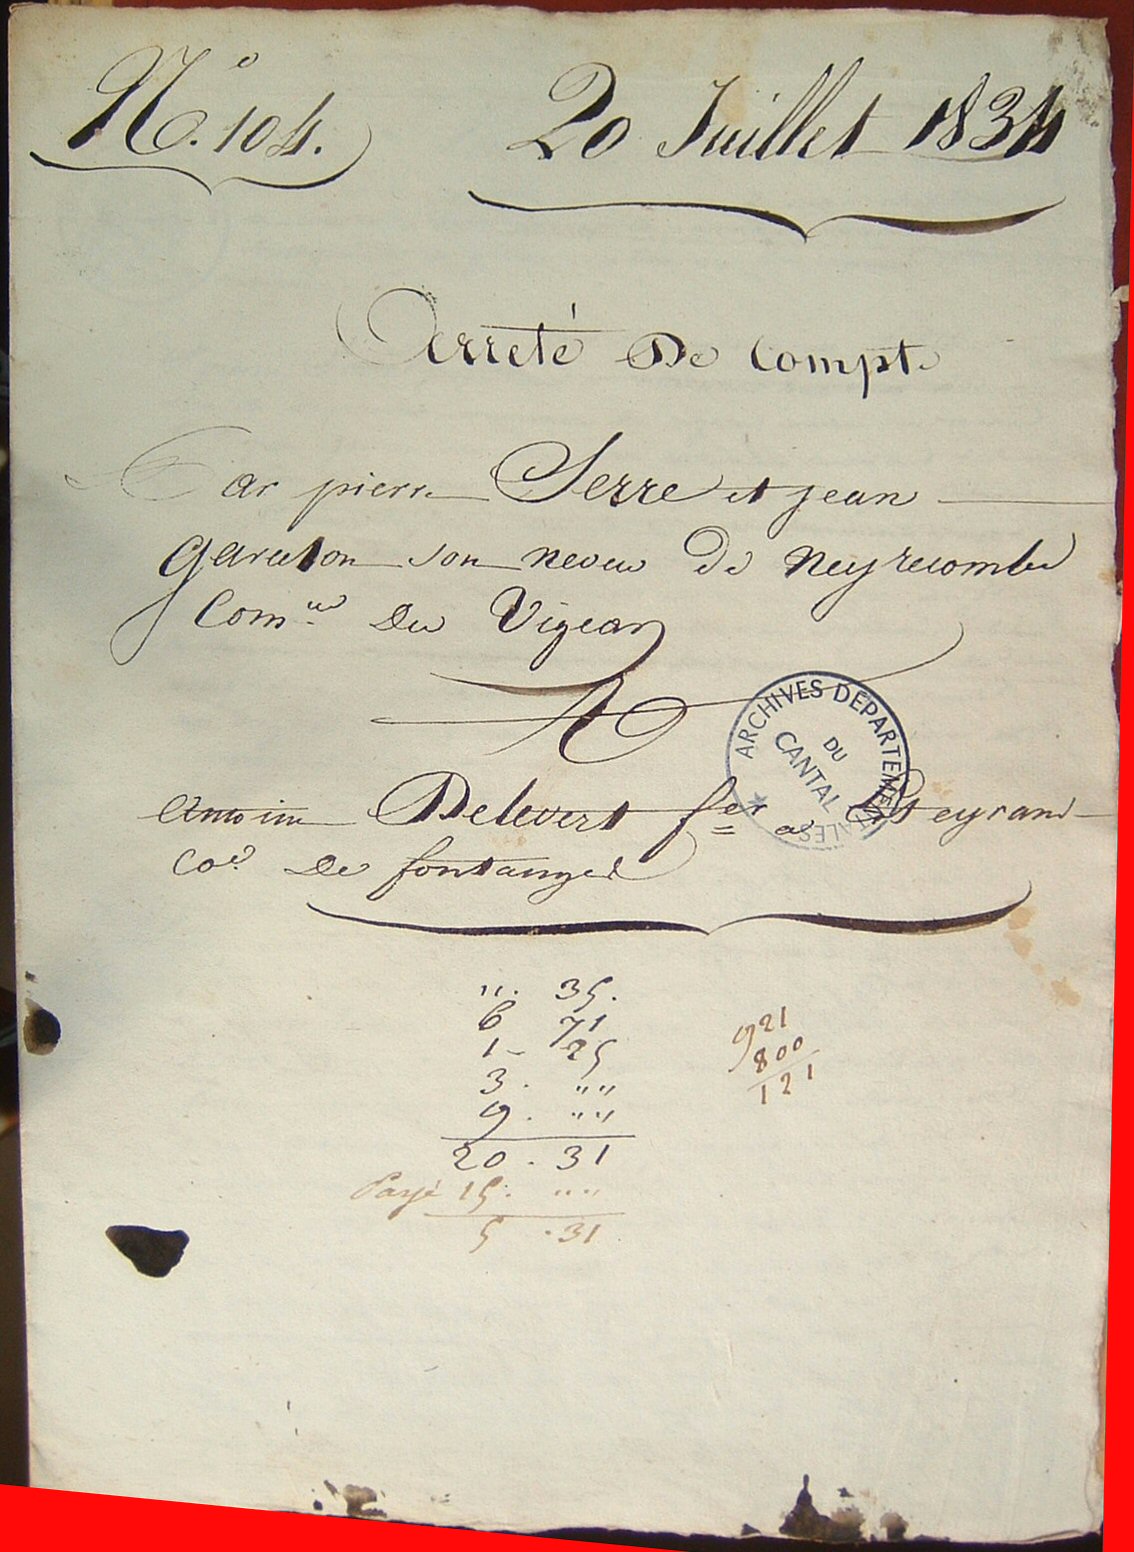 N.° 104.
20 Juillet 1834
Arreté De Compte
Par pierre Serre et jean
Garcelon son neveu De Neyrecombe
Com.ne Du Vigean
A
ARCHIVES DEPARTEMENTALES
DU
CANTAL
Antoine Delevert f.er a
Co.e De fontanges
". 35.
6 71
1 - 25
3. ""
9. ""
20. 31
Payé 15. ""
5 . 31
921
800
121